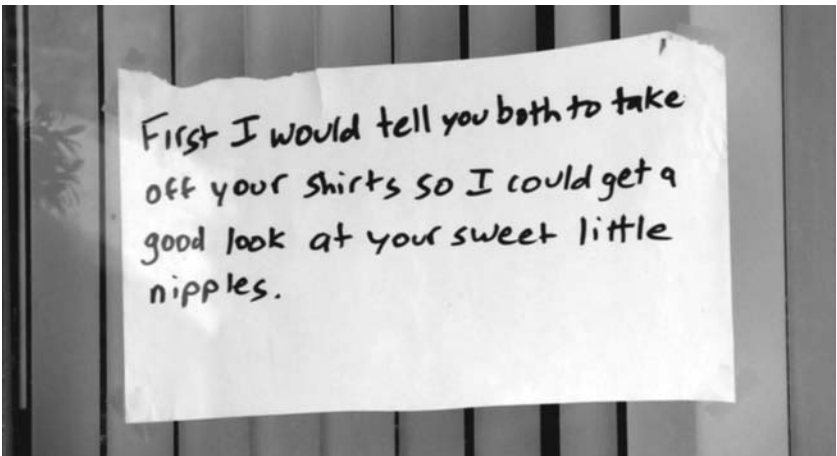 First I would tell you both to take
off your shirts so I could get a
good look at your sweet little
nipples.